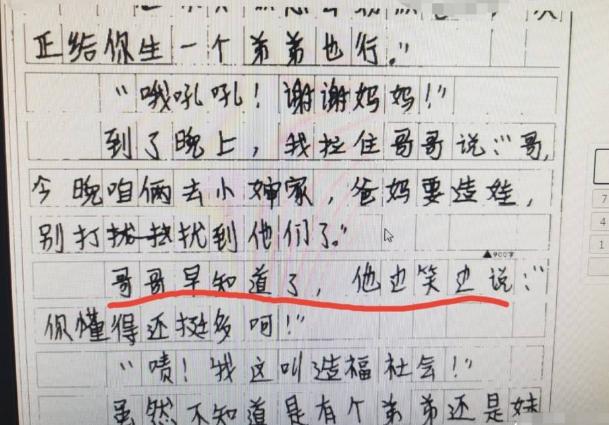 正给你生一个弟弟也行。"
"哦吼吼！谢谢妈妈！"
到了晚上，我拉住哥哥说："哥，
今晚咱俩去小婶家，爸妈要造娃，
别打扰扰到他们了。"
▲900字
哥哥早知道了，他边笑边说："
你懂得还挺多呵！"
"啧！我这叫造福社会！"
虽然不知道是有个弟弟还是妹